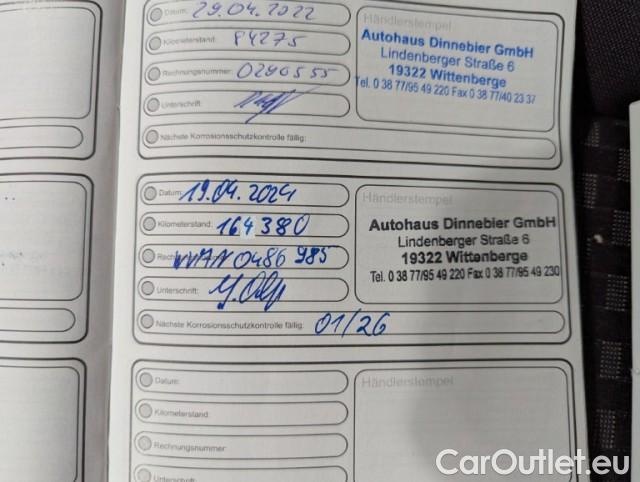 Datum: 29.04.2022
Kilometerstand: 84275
Rechnungsnummer: 0290555
Unterschrift:
Nächste Korrosionsschutzkontrolle fällig:
Händlerstempel
Autohaus Dinnebier GmbH
Lindenberger Straße 6
19322 Wittenberge
Tel. 0 38 77/95 49 220 Fax 0 38 77/40 23 37
Datum: 19.04.2024
Kilometerstand: 164380
0486985
Unterschrift:
Nächste Korrosionsschutzkontrolle fällig: 01/26
Händlerstempel
Autohaus Dinnebier GmbH
Lindenberger Straße 6
19322 Wittenberge
Tel. 0 38 77/95 49 220 Fax 0 38 77/95 49 230
Datum:
Kilometerstand:
Rechnungsnummer:
Unterschrift:
Händlerstempel
CarOutlet.eu